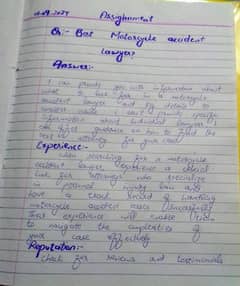 Assignment
Q:- Best Motorcycle accident
lawyer?
Answer:-
I can provide you with information about
what to look for in a motorcycle
accident lawyer and
I can't provide specific
information about individual lawyers, I
can offer guidance on how to find the
best for your case
Experience:-
when searching for a motorcycle
accident lawyer, experience is crucial
look for attorneys who specialize
in personal injury law and
have a track record of handling
motorcycle accident cases
experience will enable them
to navigate the complexities of
your case effectively
Reputation:-
check for reviews and testimonials